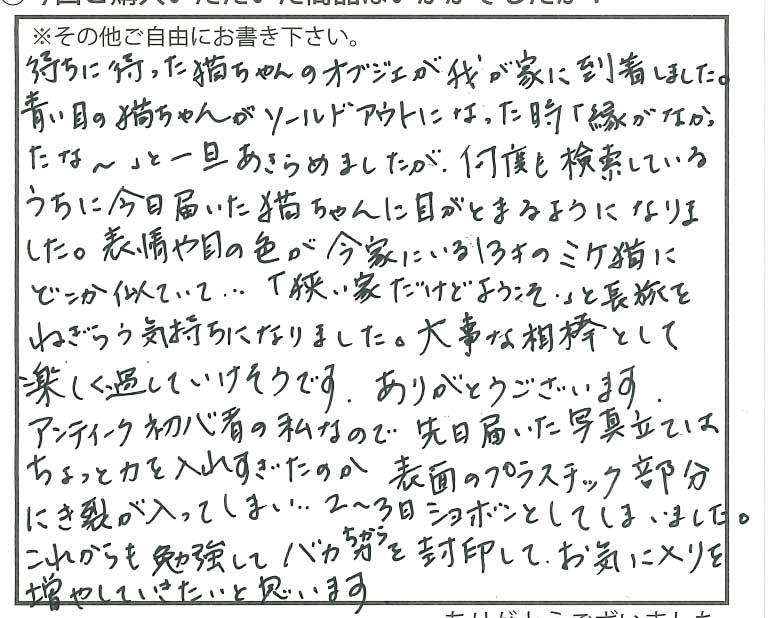 今回ご購入いただいた商品はいかがでしたか？
※その他ご自由にお書き下さい。
待ちに待った猫ちゃんのオブジェが我が家に到着しました。
青い目の猫ちゃんがソールドアウトになった時「縁がなかっ
たな～」と一旦あきらめましたが、何度も検索している
うちに今日届いた猫ちゃんに目がとまるようになりま
した。表情や目の色が今家にいる13才のミケ猫に
どこか似ていて…「狭い家だけどようこそ。」と長旅を
ねぎらう気持ちになりました。大事な相棒として
楽しく過していけそうです。ありがとうございます。
アンティーク初心者の私なので先日届いた写真立ては
ちょっと力を入れすぎたのか表面のプラスチック部分
にき裂が入ってしまい…2～3日ショボンとしてしまいました。
これからも勉強してバカ力ちからを封印して、お気に入りを
増やしていきたいと思います
ありがとうございました